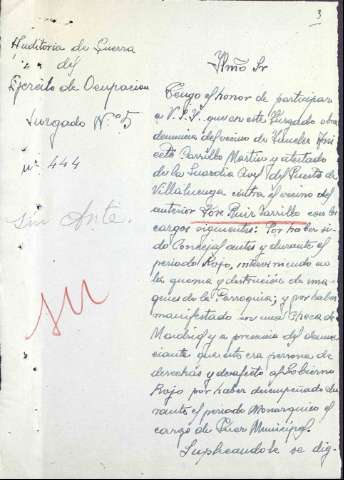 3
Auditoria de Guerra
del
Ejército de Ocupacion
Juzgado Nº 5
nº 444
Sin Anta.
Ilmo Sr
Tengo el honor de participar
a V.I. que en este Juzgado obra
denuncia del vecino de
Carrillo Martin y atestado
de la Guardia Civil del Puesto de
Villaluenga contra el vecino del
anterior José Ruiz Carrillo con los
cargos siguientes: Por haber si-
do Concejal antes y durante el
periodo Rojo, interviniendo en
la quema y destrucción de ima-
genes de la Parroquia; y por haber
manifestado en una Checa de
Madrid y a presencia del denun-
ciante que este era persona de
derechas y desafecto al Gobierno
Rojo por haber desempeñado du-
rante el periodo Monarquico el
cargo de Juez Municipal.
Suplicandole se dig-